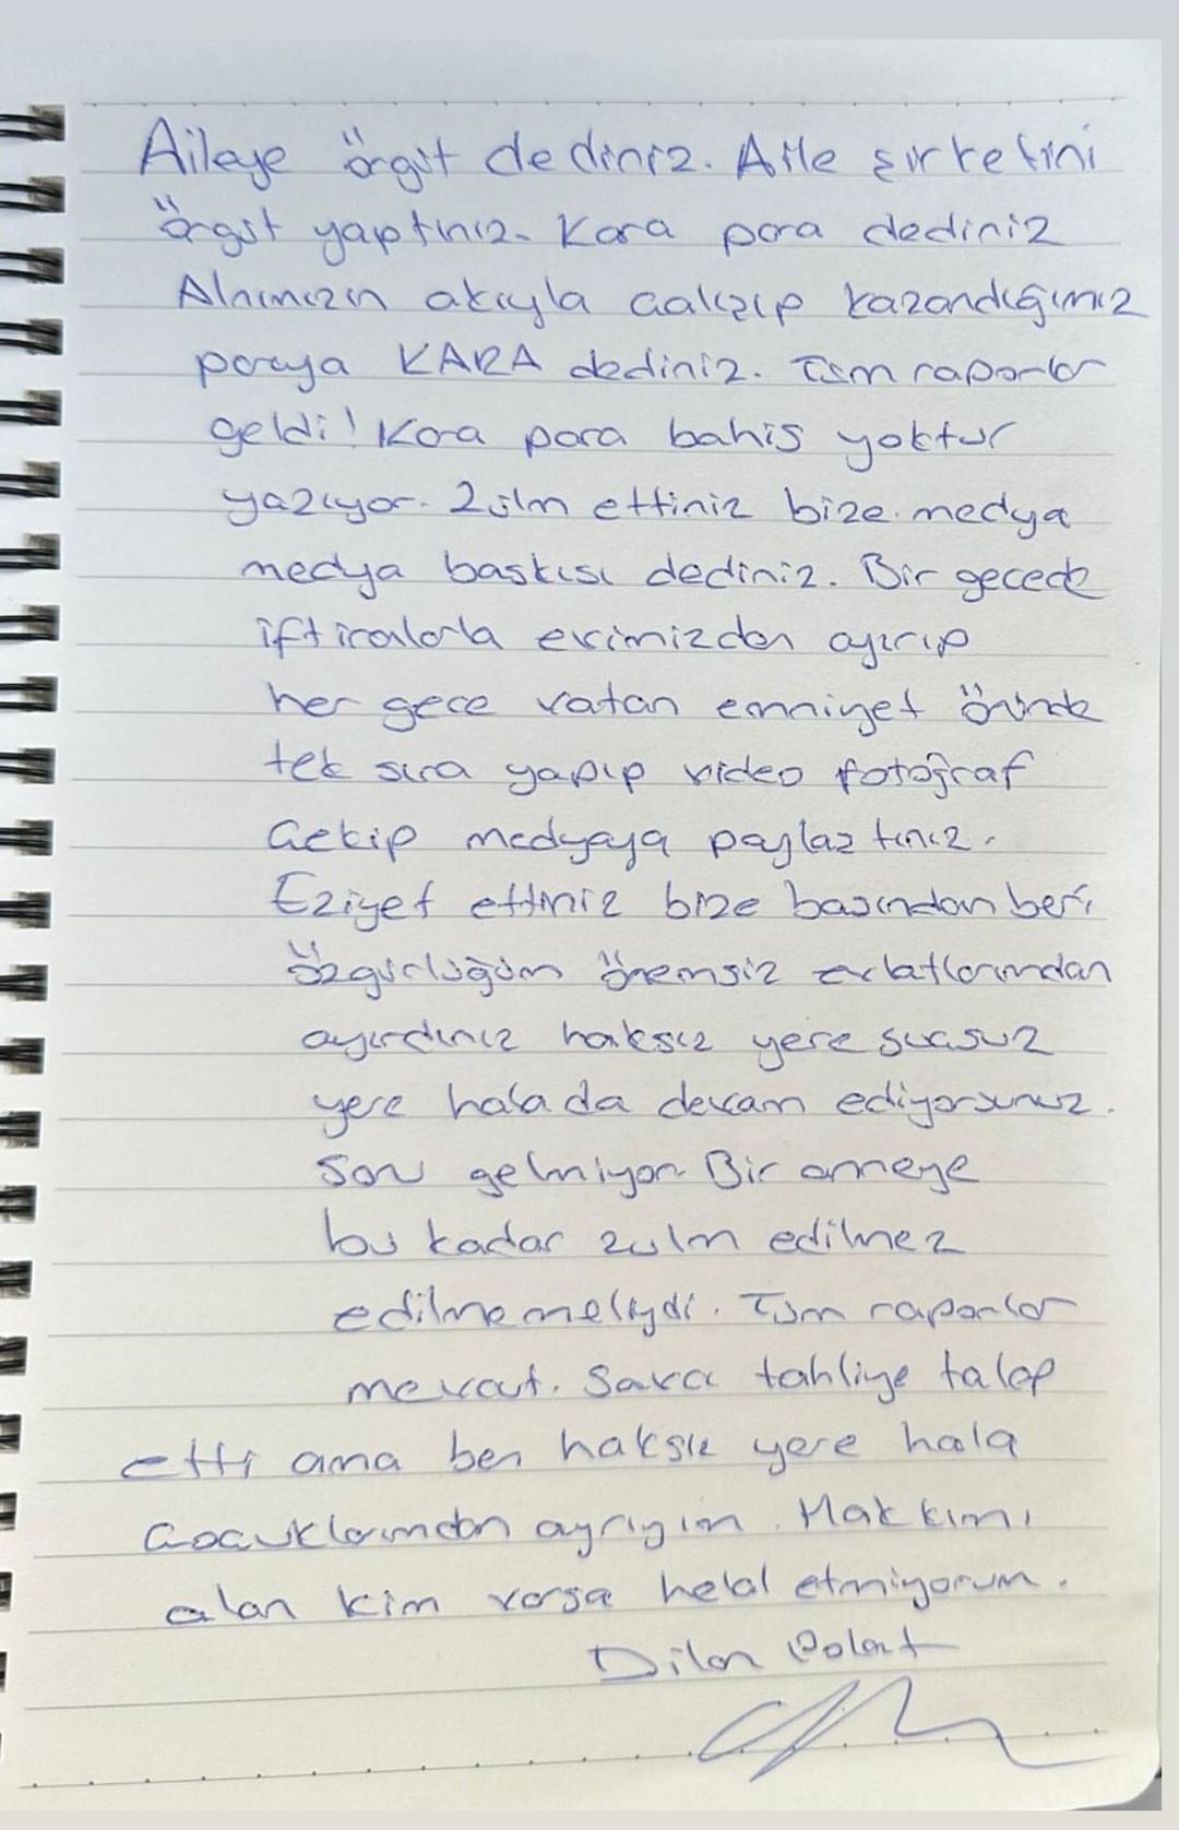 Aileye örgüt dediniz. Aile şirketini
örgüt yaptınız. Kara para dediniz
Alnımızın akıyla çalışıp kazandığımız
paraya KARA dediniz. Tüm raporlar
geldi! Kara para bahis yoktur
yazıyor. Zülm ettiniz bize. medya
medya baskısı dediniz. Bir gecede
iftiralarla evimizden ayırıp
her gece vatan emniyet önünde
tek sıra yapıp video fotoğraf
Çekip medyaya paylaştınız.
Eziyet ettiniz bize başından beri
özgürlüğüm önemsiz evlatlarımdan
ayırdınız haksız yere suçsuz
yere hala da devam ediyorsunuz.
Sonu gelmiyor. Bir anneye
bu kadar zulm edilmez
edilmemeliydi. Tüm raporlar
mevcut. Savcı tahliye talep
etti ama ben haksız yere hala
Çocuklarımdan ayrıyım. Hakkımı
alan kim varsa helal etmiyorum.
Dilan Polat